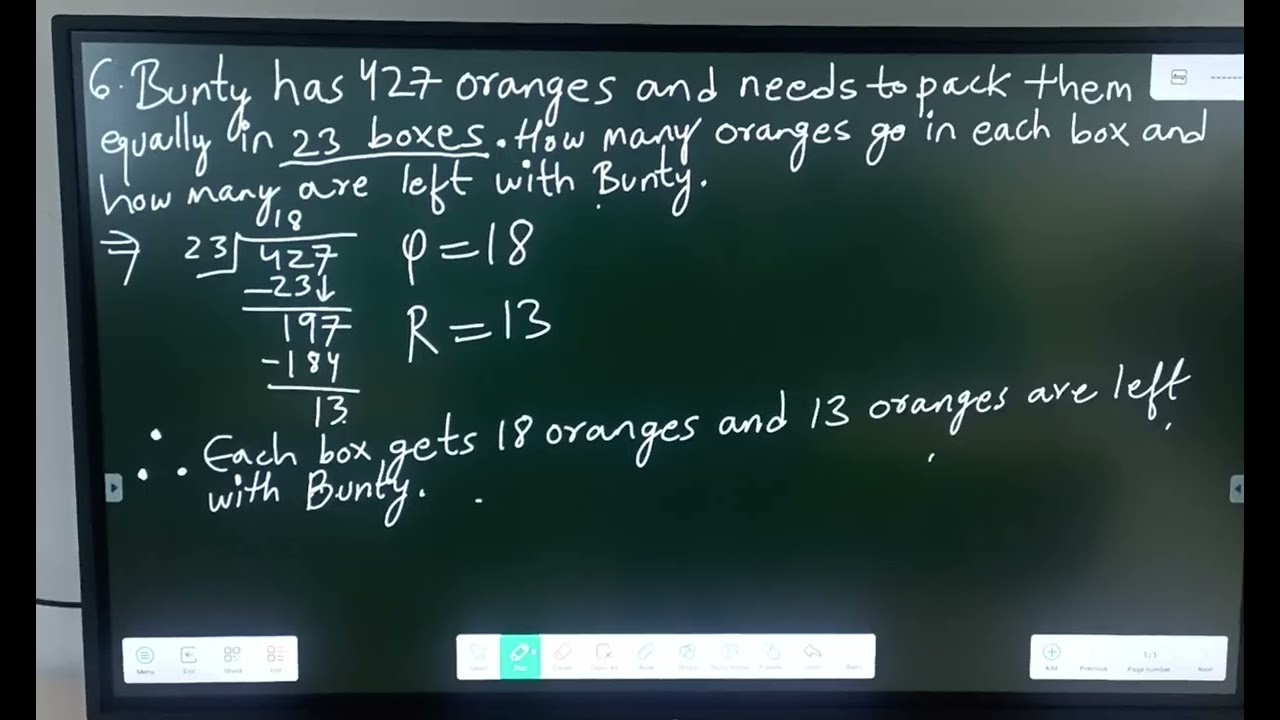 6. Bunty has 427 oranges and needs to pack them
equally in 23 boxes. How many oranges go in each box and
how many are left with Bunty.
18
⇒ 23 427 φ = 18
- 23↓
197 R = 13
- 184
13
∴ Each box gets 18 oranges and 13 oranges are left
with Bunty.
Menu Exit Undo Previous 1/1 Page number Next
Add